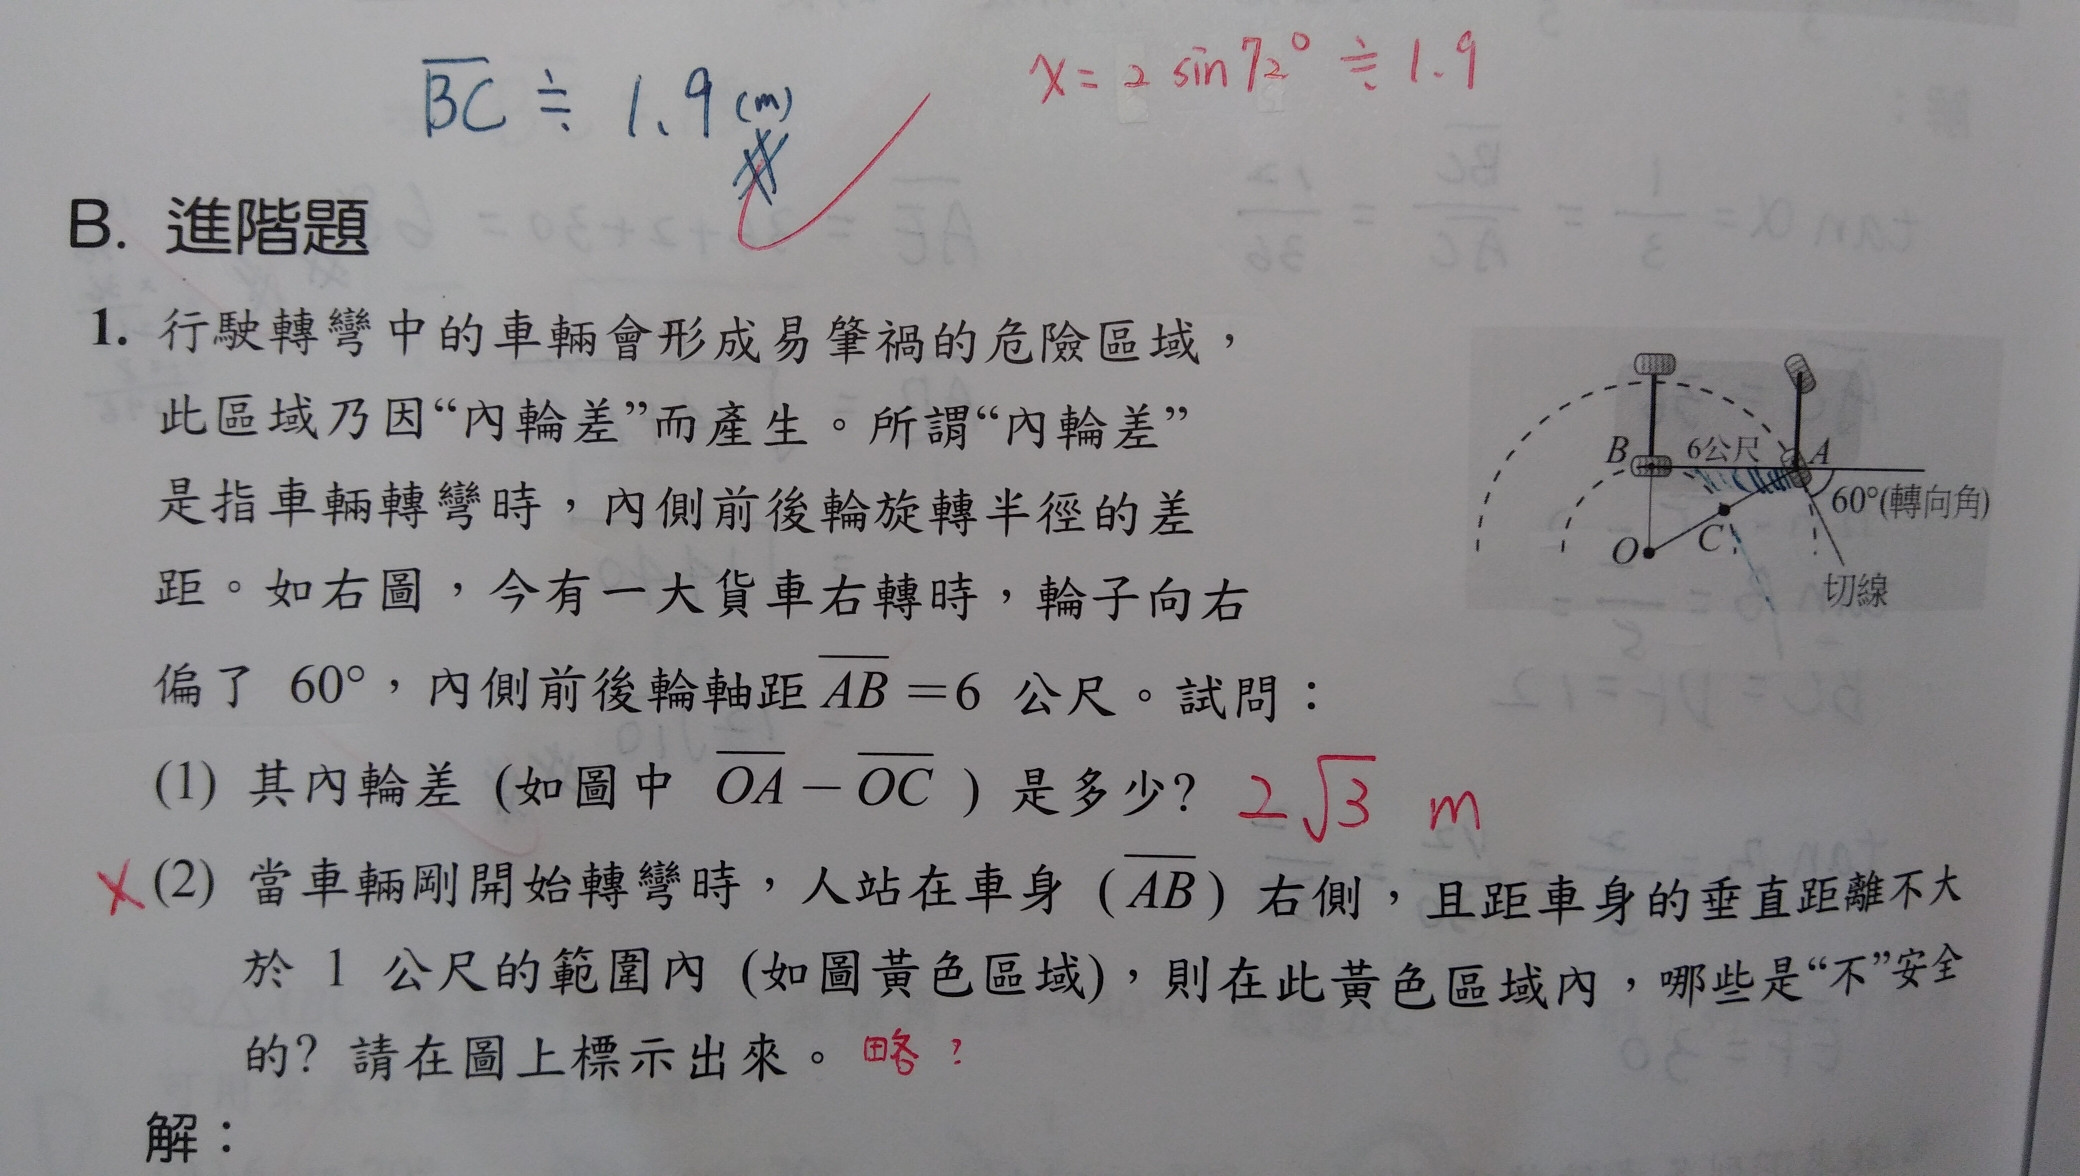 BC ≒ 1.9 (m)
x = 2 sin 72° ≒ 1.9
B. 進階題
1. 行駛轉彎中的車輛會形成易肇禍的危險區域，
此區域乃因“內輪差”而產生。所謂“內輪差”
是指車輛轉彎時，內側前後輪旋轉半徑的差
距。如右圖，今有一大貨車右轉時，輪子向右
偏了 60°，內側前後輪軸距 AB =6 公尺。試問：
B 6公尺 A
60°(轉向角)
O C
切線
(1) 其內輪差 (如圖中 OA − OC ) 是多少? 2√3 m
× (2) 當車輛剛開始轉彎時，人站在車身 ( AB ) 右側，且距車身的垂直距離不大
於 1 公尺的範圍內 (如圖黃色區域)，則在此黃色區域內，哪些是“不”安全
的? 請在圖上標示出來。 略 ?
解：